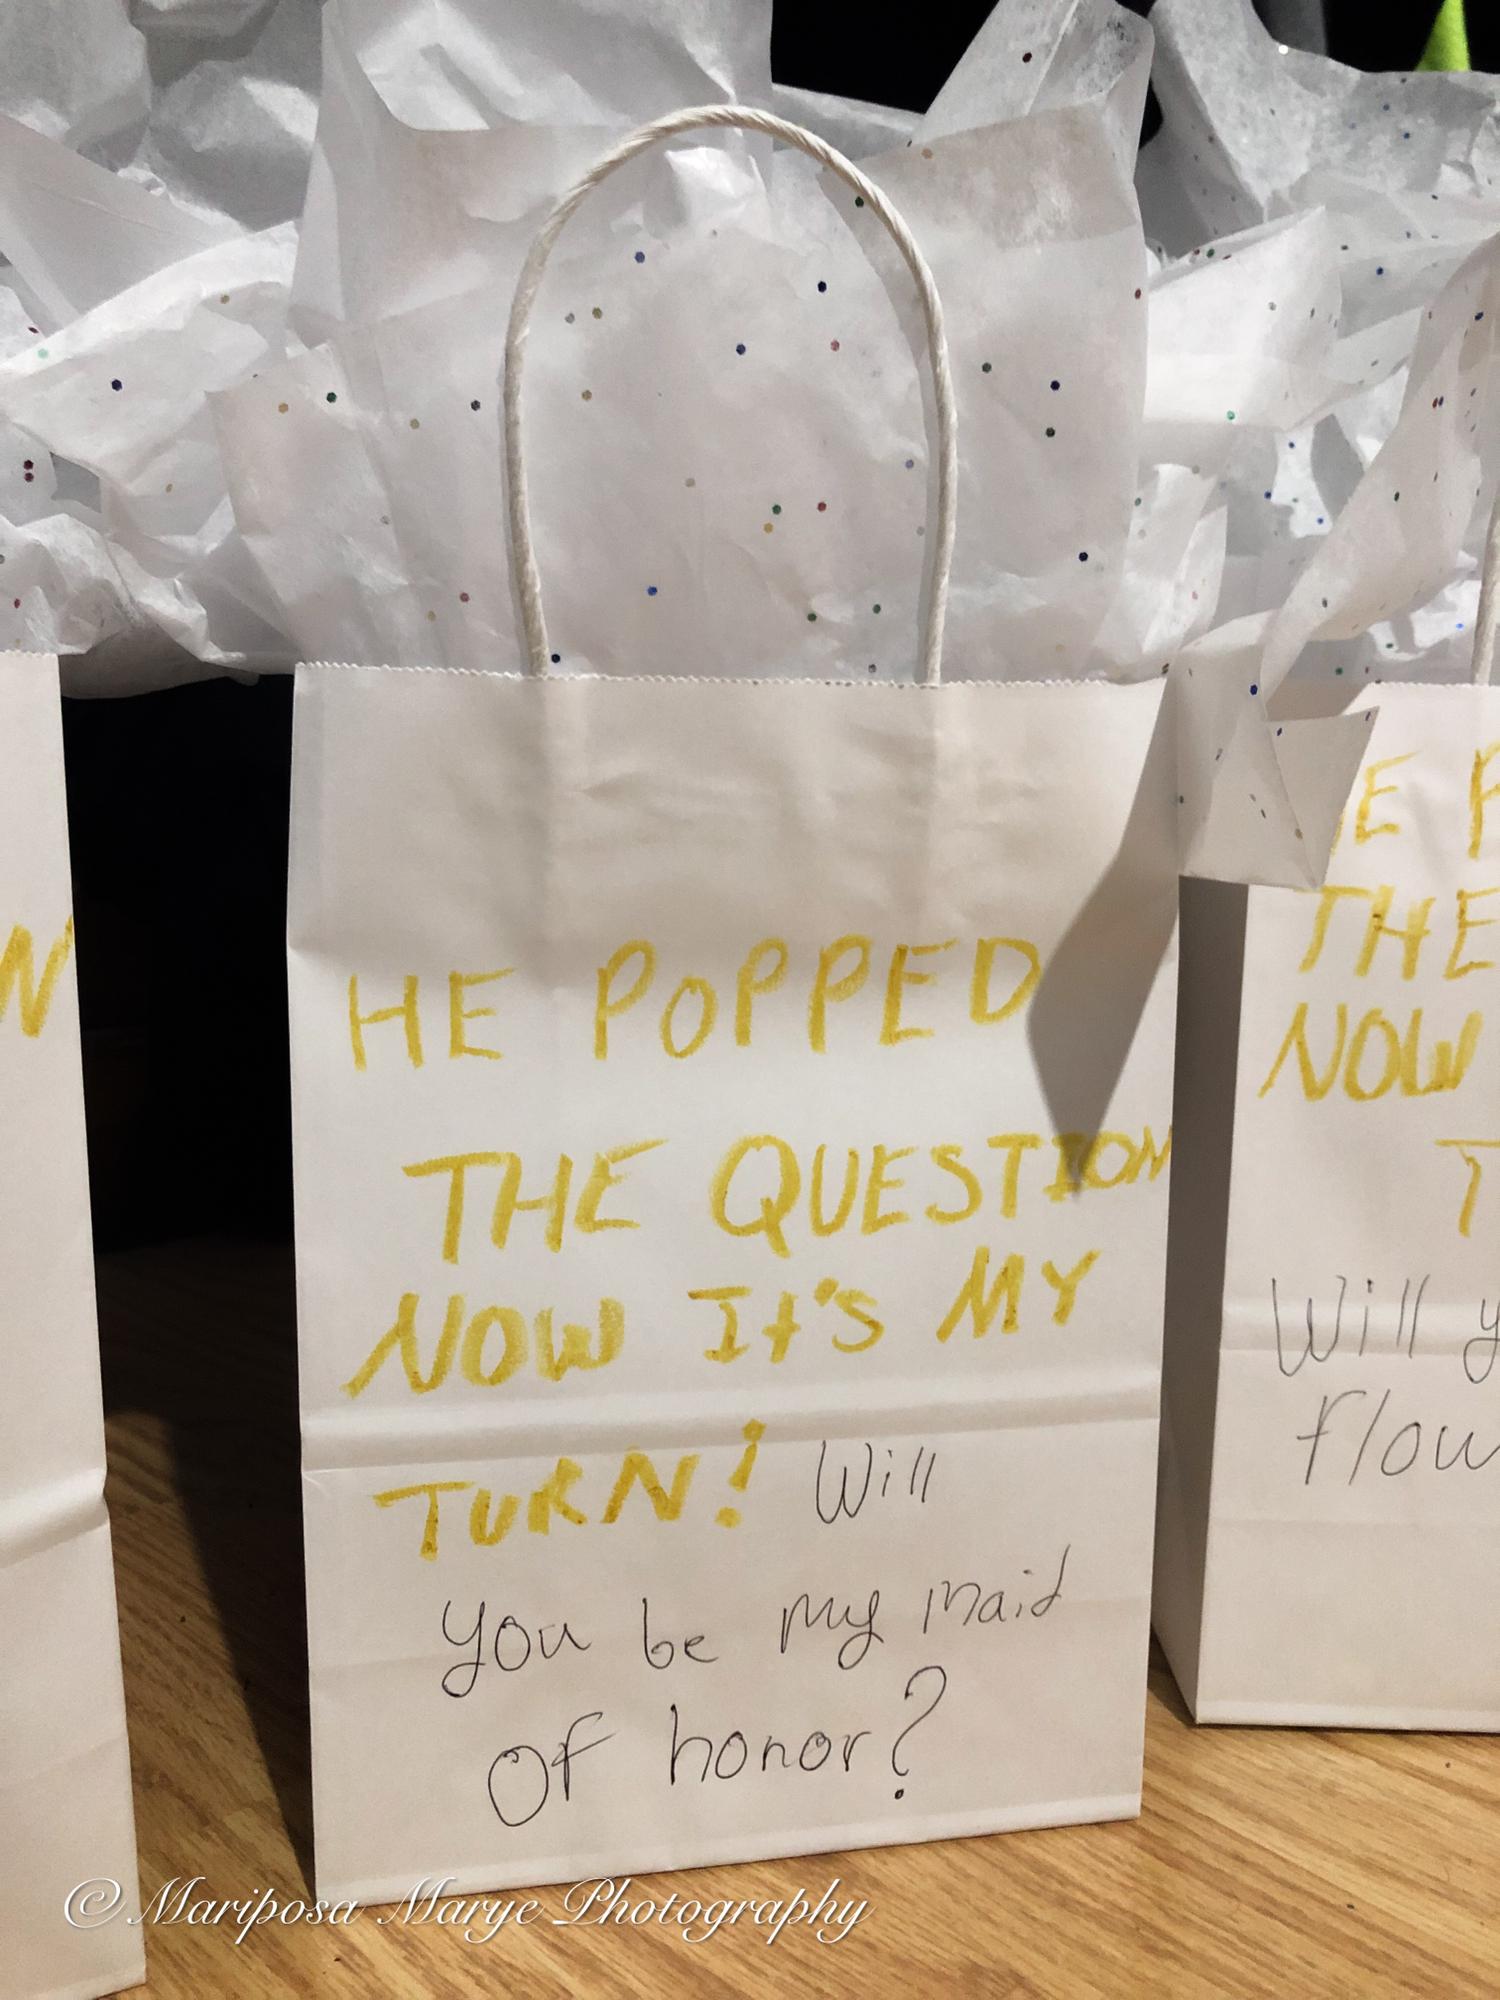 HE POPPED
THE QUESTION
NOW It's MY
TURN! Will
you be my maid
Of honor?
N
THE
NOW
T
Will
© Mariposa Marye Photography